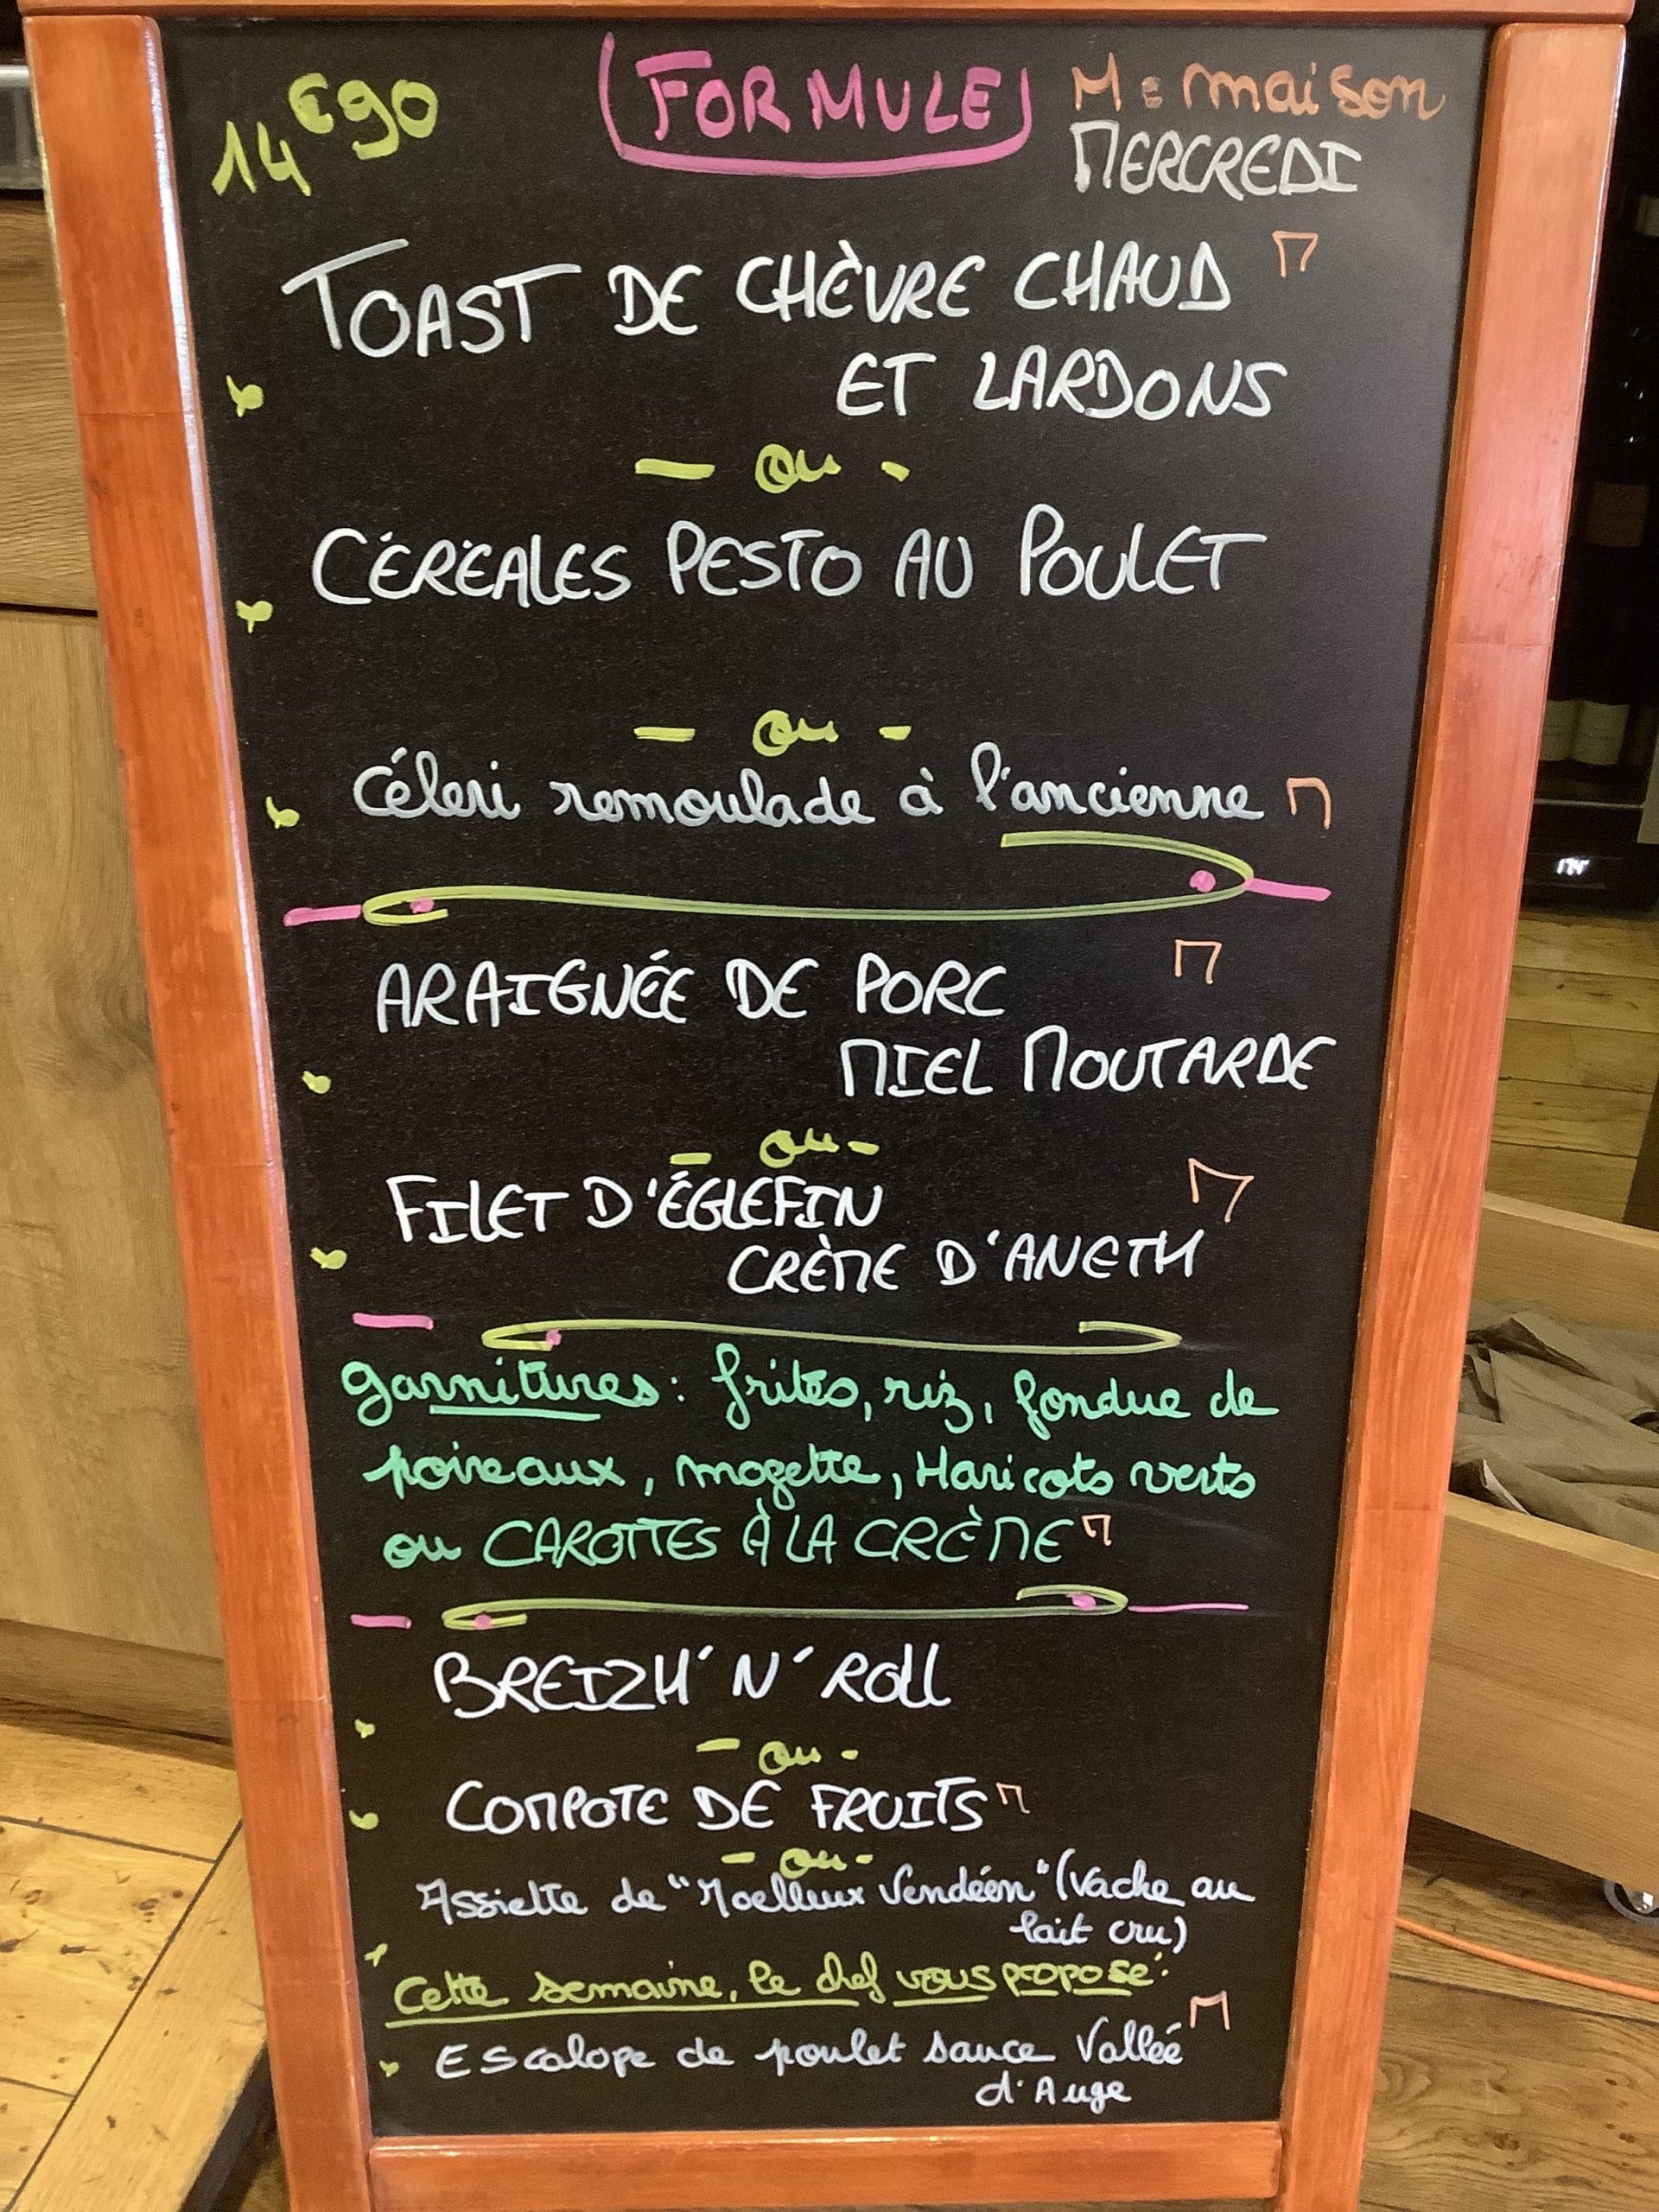 14€90 FORMULE M = maison
MERCREDI
TOAST DE CHÈVRE CHAUD M
ET LARDONS
- ou -
CÉRÉALES PESTO AU POULET
- ou -
Céleri remoulade à l'ancienne M
ARAIGNÉE DE PORC M
MIEL MOUTARDE
- ou -
FILET D'ÉGLEFIN M
CRÈME D'ANETH
garnitures : frites, riz, fondue de
poireaux, mogette, Haricots verts
ou CAROTTES À LA CRÈME M
BREIZH'N'ROLL
- ou -
COMPOTE DE FRUITS M
- ou -
Assiette de "Moelleux Vendéen" (Vache au
lait cru)
Cette semaine, le chef vous propose :
Escalope de poulet sauce Vallée M
d'Auge